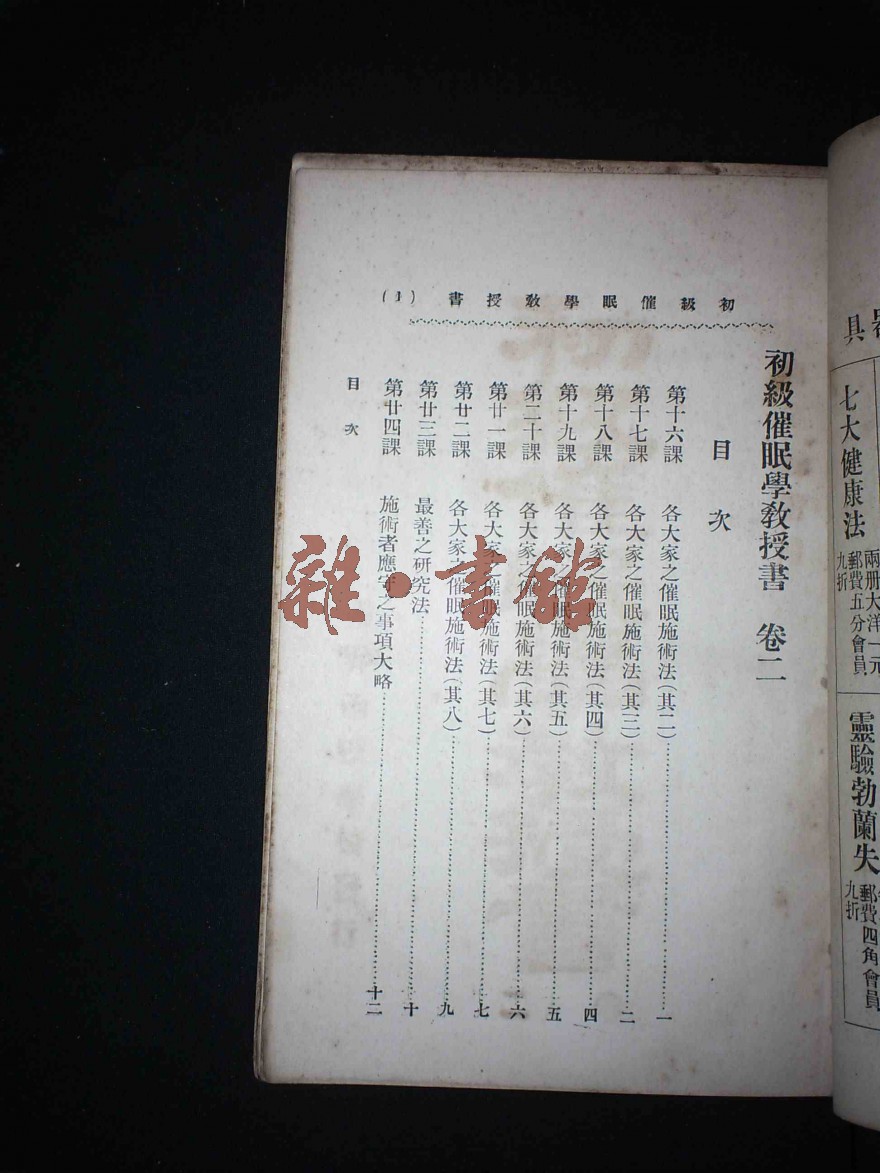 具
七大健康法
兩册大洋一元
郵費五分會員
九折
靈驗勃蘭失
郵費四角會員
九折
初級催眠學教授書 (1)
初級催眠學教授書 卷二
目次
第十六課 各大家之催眠施術法(其二)……一
第十七課 各大家之催眠施術法(其三)……二
第十八課 各大家之催眠施術法(其四)……四
第十九課 各大家之催眠施術法(其五)……五
第二十課 各大家之催眠施術法(其六)……六
第廿一課 各大家之催眠施術法(其七)……七
第廿二課 各大家之催眠施術法(其八)……九
第廿三課 最善之研究法……十
第廿四課 施術者應守之事項大略……十二
目次
雜·書館